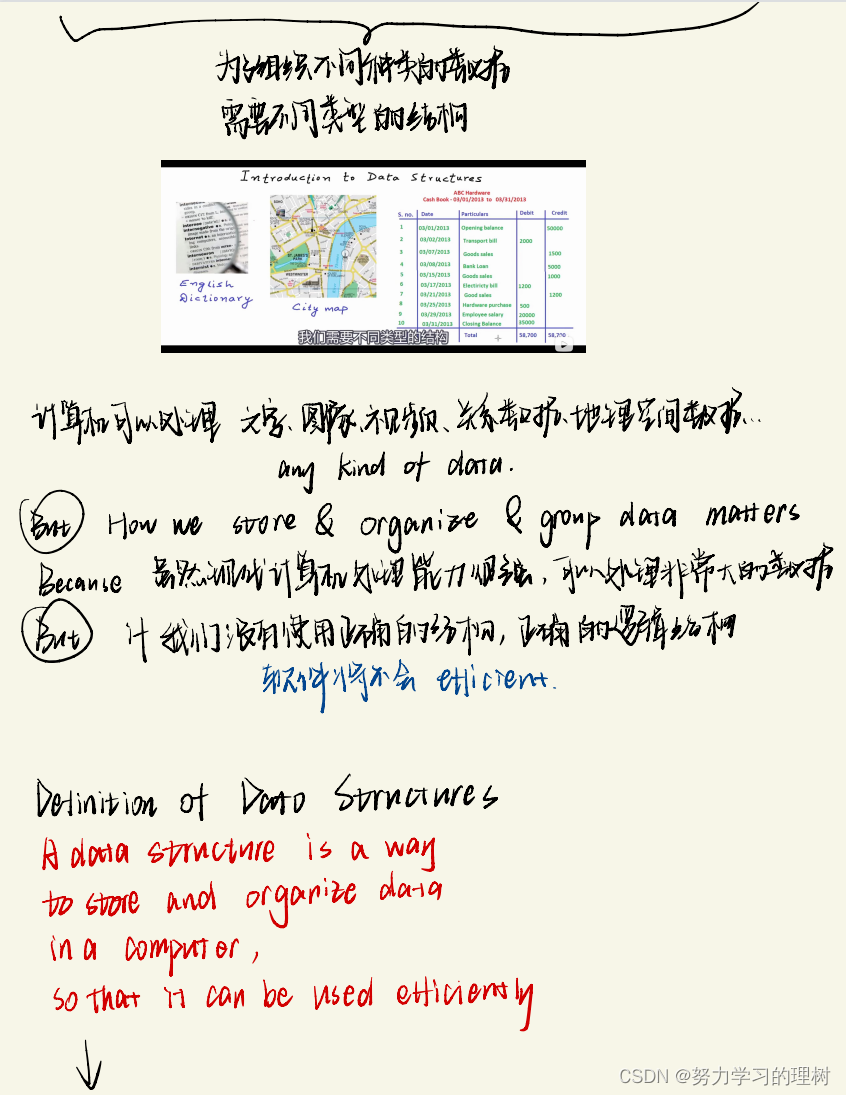 为了组织不同种类的数据
需要不同类型的结构
Introduction to Data Structures
ABC Hardware
Cash Book - 03/01/2013 to 03/31/2013
S. no. Date Particulars Debit Credit
1 03/01/2013 Opening balance 50000
2 03/02/2013 Transport bill 2000
3 03/07/2013 Goods sales 1500
4 03/08/2013 Bank Loan 5000
5 03/15/2013 Goods sales 1000
6 03/17/2013 Electiricty bill 1200
7 03/21/2013 Good sales 1200
8 03/25/2013 Hardware purchase 500
9 03/29/2013 Employee salary 20000
10 03/31/2013 Closing Balance 35000
Total 58,700 58,700
English
Dictionary
City map
我们需要不同类型的结构
计算机可以处理 文字、图像、视频、关系数据、地理空间数据...
any kind of data.
But How we store & organize & group data matters
Because 虽然现代计算机处理能力很强,可以处理非常大的数据
But 计 我们没有使用正确的结构,正确的逻辑结构
软件将不会 efficient.
Definition of Data Structures
A data structure is a way
to store and organize data
in a computer,
so that it can be used efficiently
CSDN @努力学习的理树